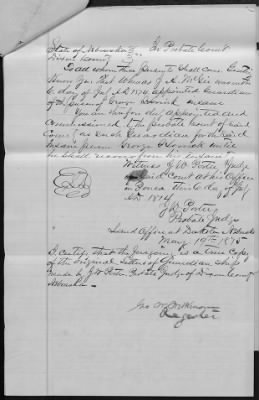 State of Nebraska } In Probate Court
Dixon County }
To all whom these presents shall come, Greeting
Know ye, That Whereas J. H. McGee was on the
6 day of July AD 1874 appointed Guardian
of the person of George insane
You are therefore duly appointed and
commissioned by the Probate Court of said
County as such Guardian for the said
insane person George until
he shall recover from his insanity
Witness J W Porter Judge
of said Court at his Office
in Ponca this 6 day of July
AD. 1874
J W Porter
Probate Judge
Land Office at Dakota Nebraska
May 19th 1875
I certify that the foregoing is a true copy
of the original letters of Guardian ship
made by J W Porter, Probate Judge of Dixon County
Nebraska
Geo W Wilkinson
Register